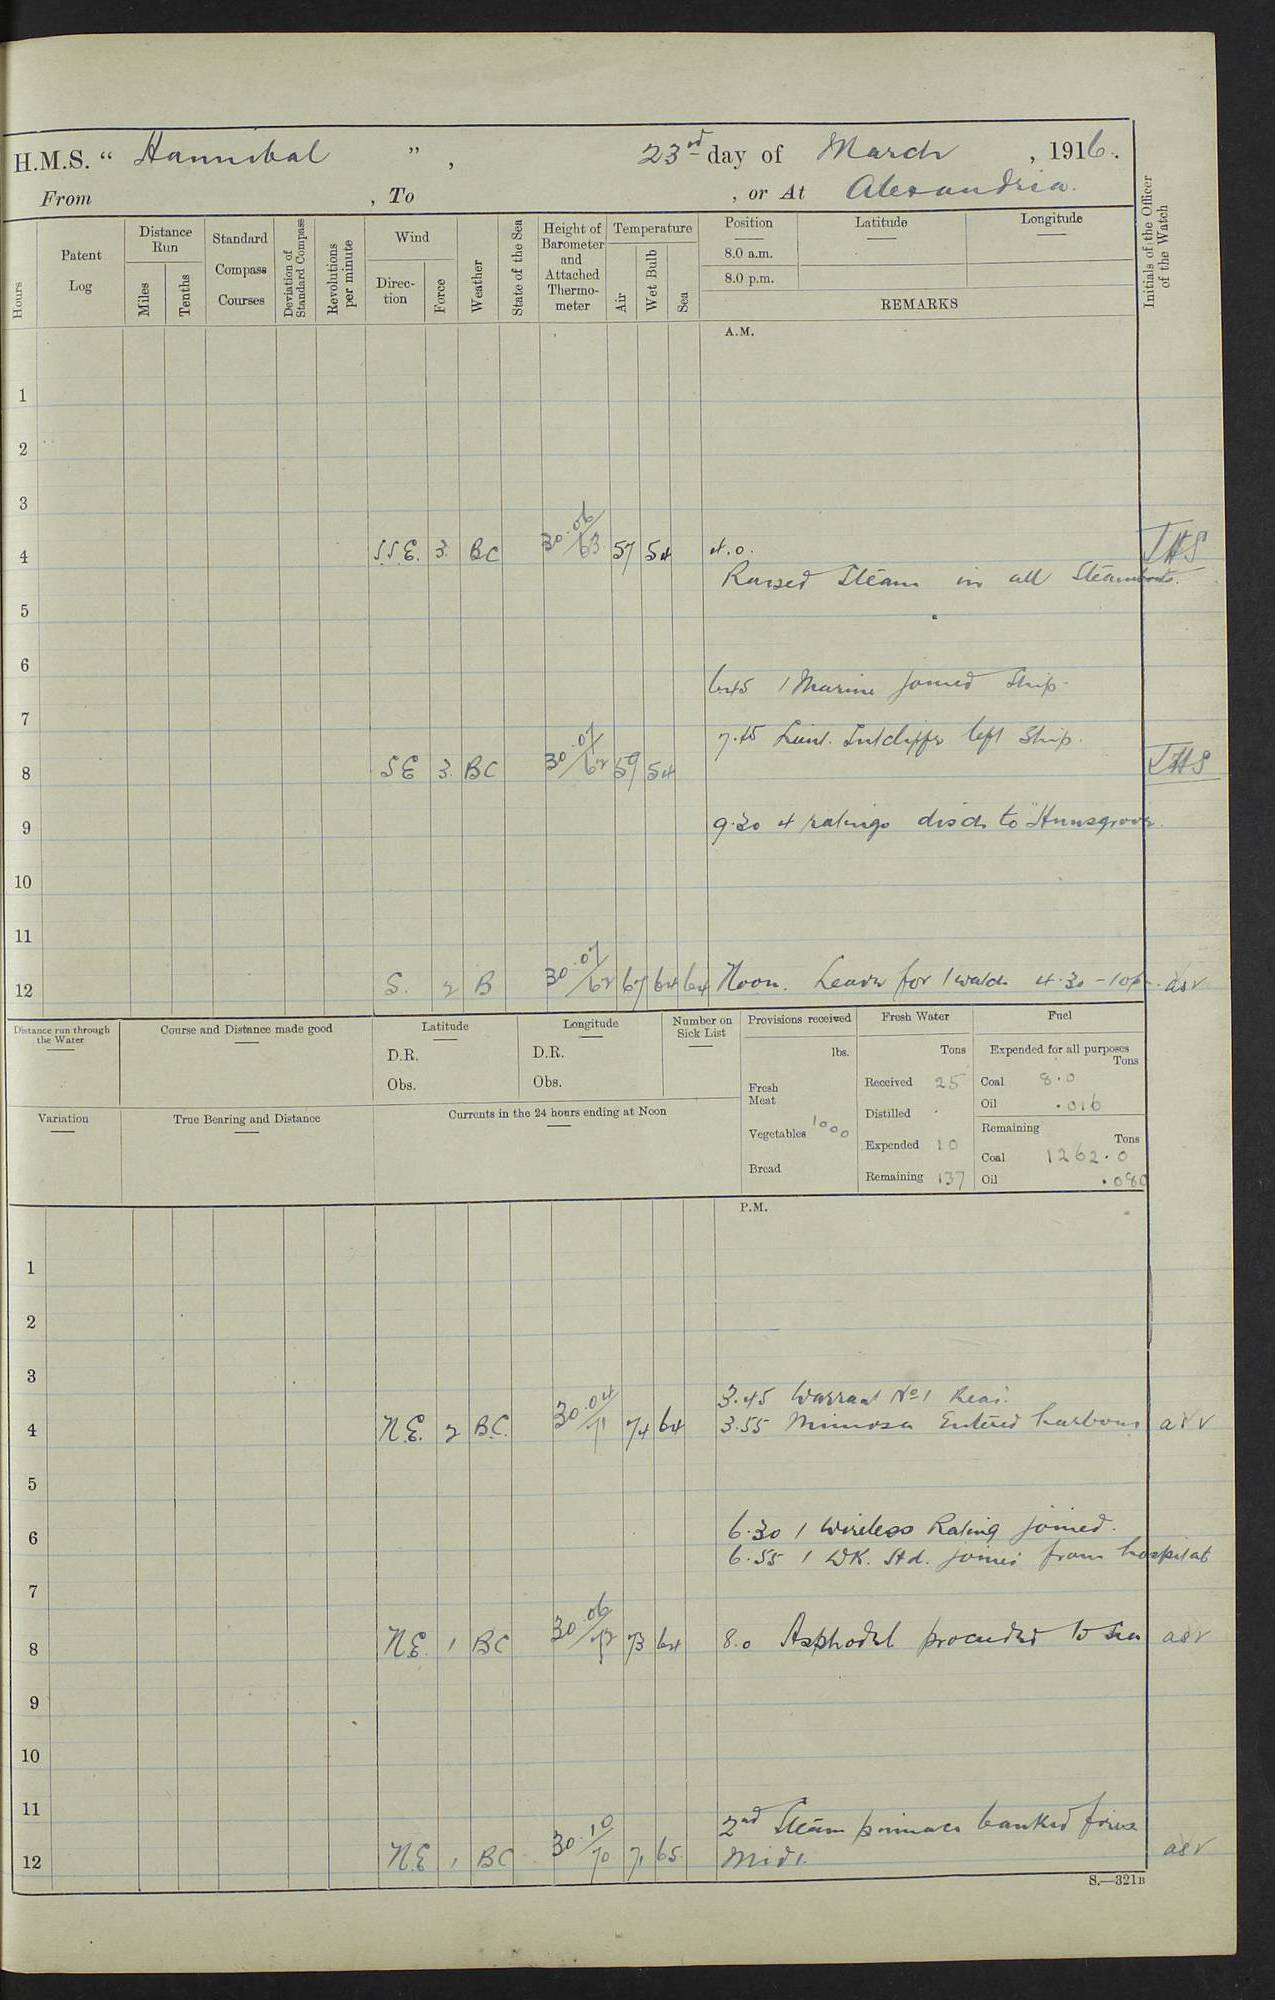 H.M.S. “ Hannibal ” , 23rd day of March , 1916.
From , To , or At Alexandria.
Hours
Patent Log
Distance Run
Miles
Tenths
Standard Compass Courses
Deviation of Standard Compass
Revolutions per minute
Wind
Direction
Force
Weather
State of the Sea
Height of Barometer and Attached Thermometer
Temperature
Air
Wet Bulb
Sea
Position Latitude Longitude
8.0 a.m.
8.0 p.m.
REMARKS
Initials of the Officer of the Watch
A.M.
1
2
3
4 S.S.E. 3. BC 30.06/63 57 54 4.0. JHS
Raised Steam in all Steamboats.
5
6
6.45 1 Marine joined Ship.
7
7.45 Lieut. Sutcliffe left Ship.
8 SE 3. BC 30.07/62 59 54 JHS
9 9.30 4 ratings disch to "Hunsgrove.
10
11
12 S. 2 B 30.07/62 67 64 64 Noon. Leave for 1 watch 4.30 – 10 asv
Distance run through the Water
Course and Distance made good
Latitude
D.R.
Obs.
Longitude
D.R.
Obs.
Number on Sick List
Variation
True Bearing and Distance
Currents in the 24 hours ending at Noon
Provisions received
lbs.
Fresh Meat
Vegetables 1000
Bread
Fresh Water
Tons
Received 25
Distilled
Expended 10
Remaining 137
Fuel
Expended for all purposes
Tons
Coal 8.0
Oil .016
Remaining
Tons
Coal 1262.0
Oil .080
P.M.
1
2
3
3.45 Warrant No 1 Read.
4 N.E. 2 B.C. 30.04/71 74 64 3.55 Mimosa Entered harbour asv
5
6 6.30 1 Wireless Rating joined.
6.55 1 WK. Std. joined from hospital
7
8 N.E. 1 BC 30.06/72 73 64 8.0 Asphodel proceeded to sea asv
9
10
11
2nd Steam pinnace banked fires
12 N.E 1 BC 30.10/70 71 65 Midt. asv
S.—321B